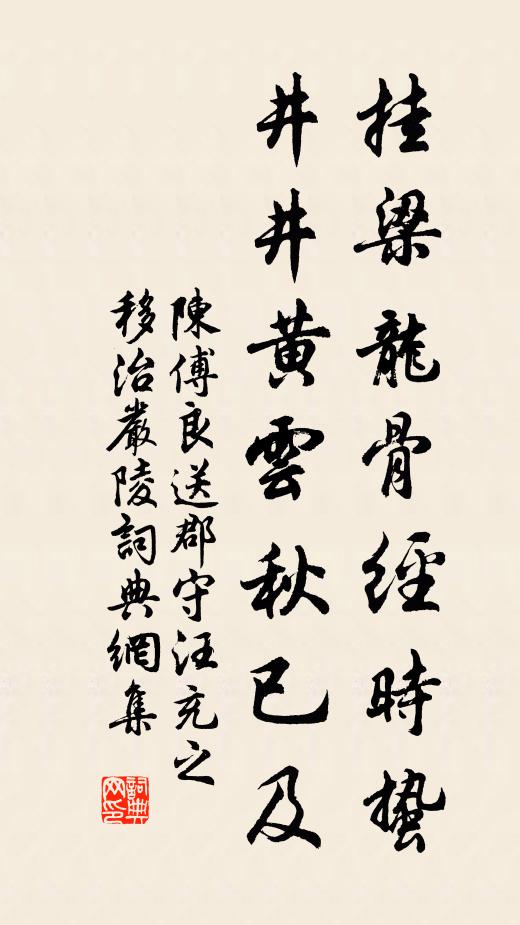 挂梁龍骨經時蟄
井井黃雲秋已及
陳傅良送郡守汪充之
移治嚴陵詞典網集
詞典
网印